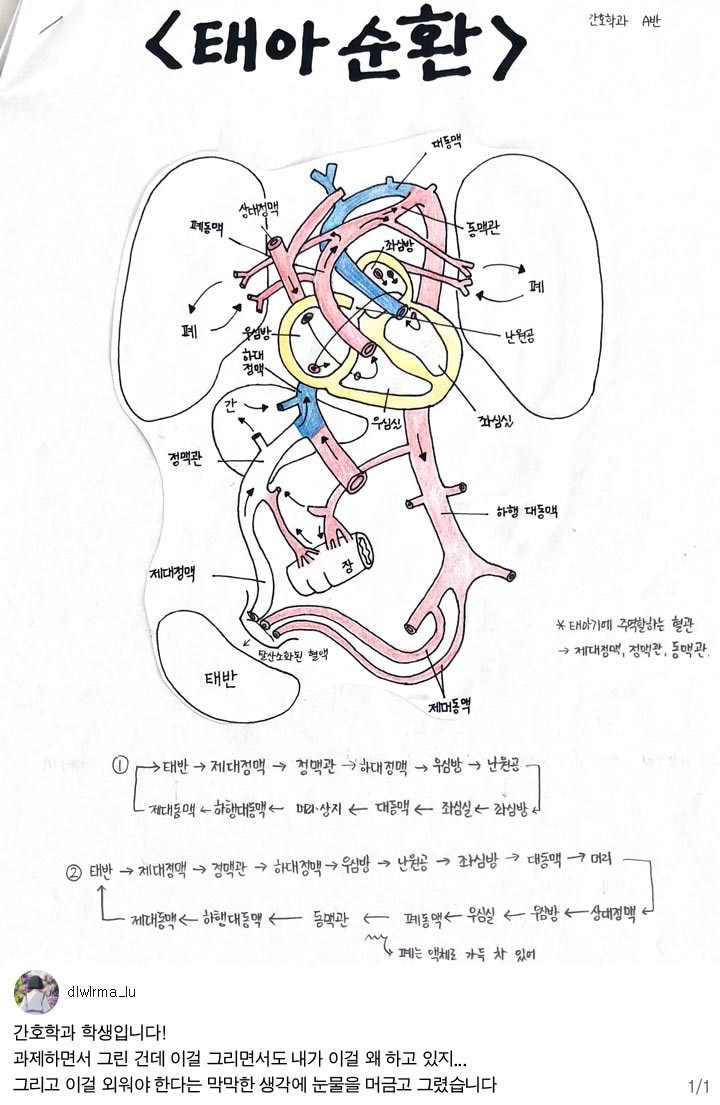 간호학과 A반
<태아순환>
대동맥
상대정맥
폐동맥
동맥관
좌심방
폐
폐
난원공
우심방
하대
정맥
간
우심실
좌심실
정맥관
하행 대동맥
장
제대정맥
탈산소화된 혈액
태반
제대동맥
* 태아기에 주역할하는 혈관
→ 제대정맥, 정맥관, 동맥관
① → 태반 → 제대정맥 → 정맥관 → 하대정맥 → 우심방 → 난원공
제대동맥 ← 하행대동맥 ← 머리·상지 ← 대동맥 ← 좌심실 ← 좌심방
② 태반 → 제대정맥 → 정맥관 → 하대정맥 → 우심방 → 난원공 → 좌심방 → 대동맥 → 머리
제대동맥 ← 하행대동맥 ← 동맥관 ← 폐동맥 ← 우심실 ← 우심방 ← 상대정맥
→ 폐는 액체로 가득 차 있어
dlwlrma_lu
간호학과 학생입니다!
과제하면서 그린 건데 이걸 그리면서도 내가 이걸 왜 하고 있지...
그리고 이걸 외워야 한다는 막막한 생각에 눈물을 머금고 그렸습니다
1/1